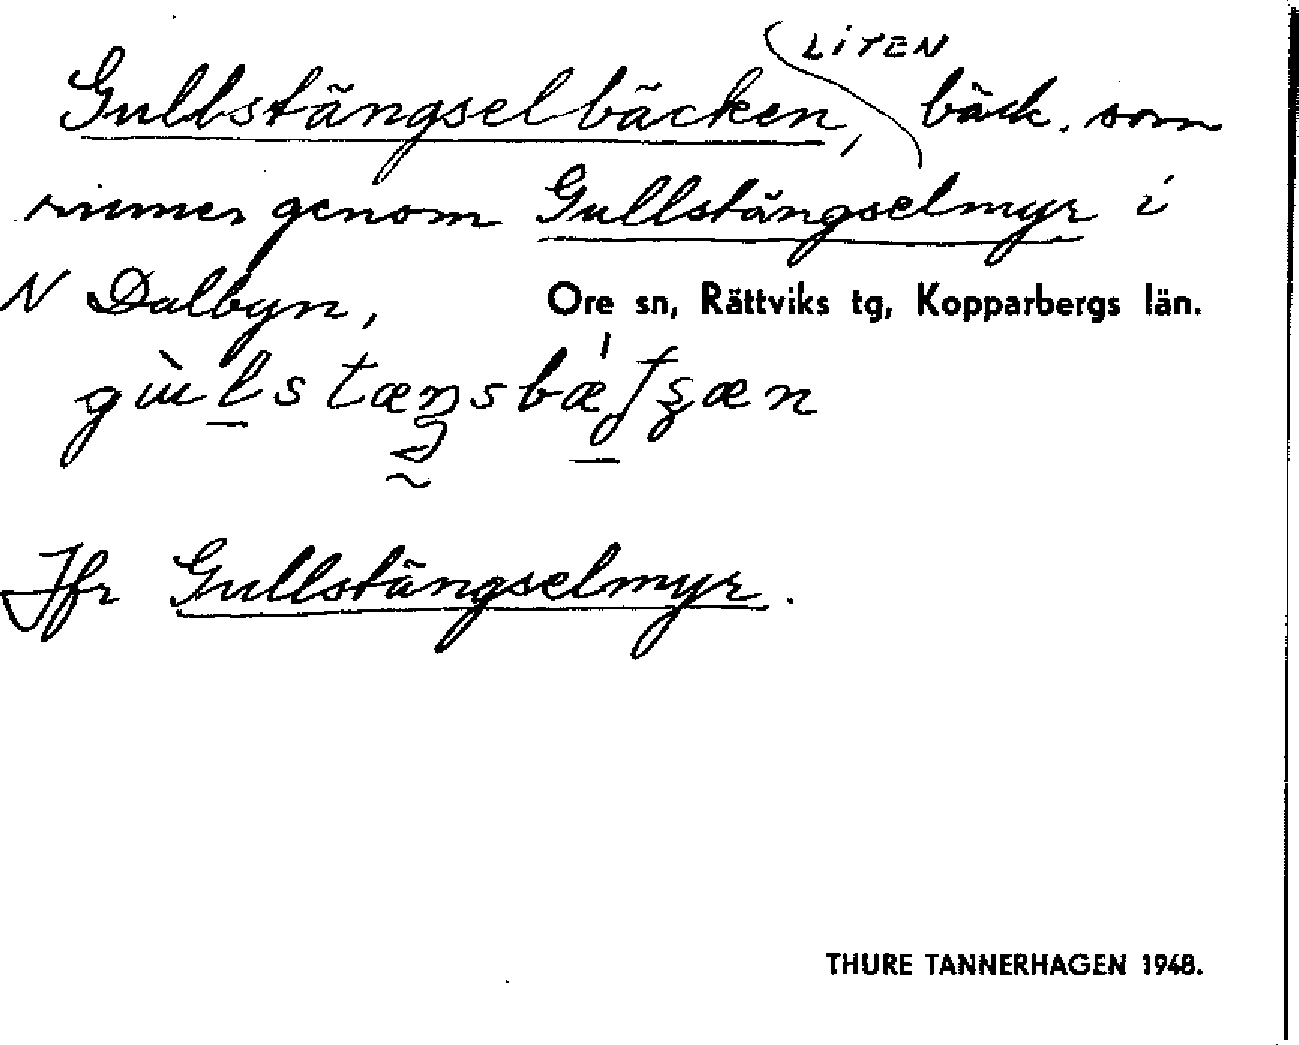 Gullstängselbäcken, LITEN bäck, som
rinner genom Gullstängselmyr i
N Dalbyn, Ore sn, Rättviks tg, Kopparbergs län.
Jfr Gullstängselmyr.
THURE TANNERHAGEN 1948.